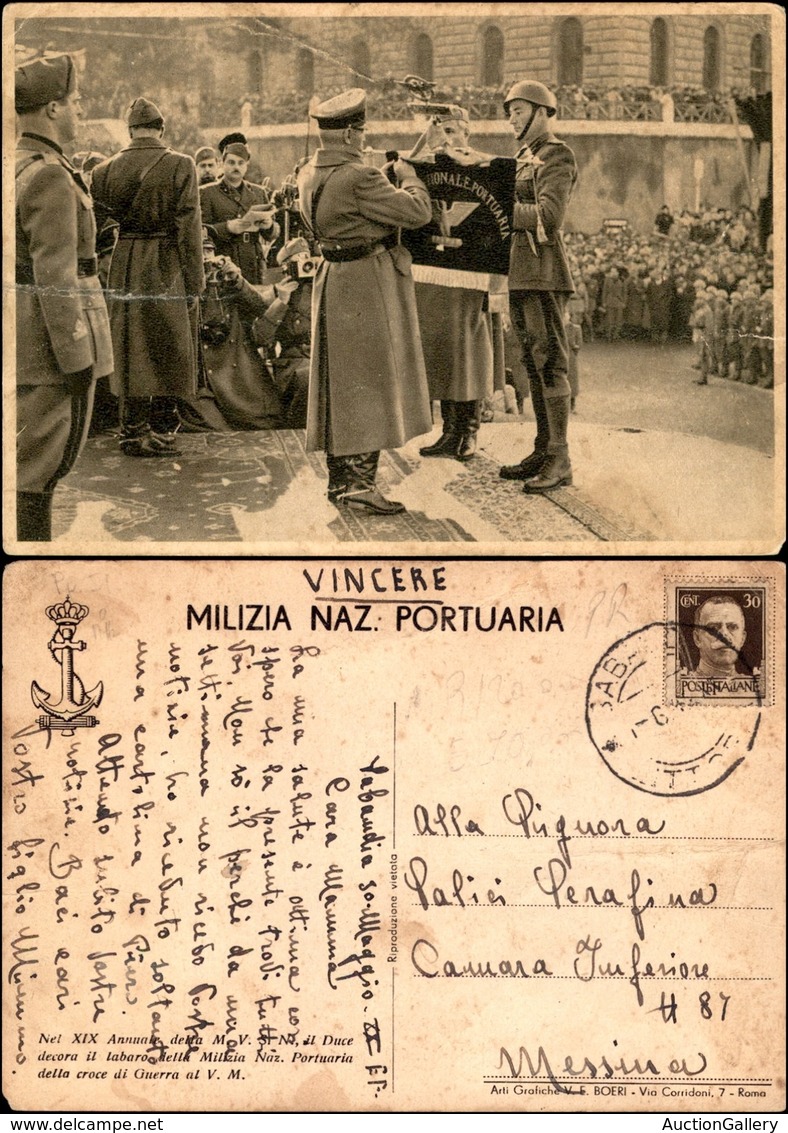 NAZIONALE PORTUARIA
VINCERE
MILIZIA NAZ. PORTUARIA
CENT. 30
POSTE ITALIANE
Sabaudia 30-Maggio-XX EF-
Cara Mamma
La mia salute è ottima così
spero che la presente trovi tutti
Voi. Non so il perché da una
settimana non ricevo Vostre
notizie, ho ricevuto soltanto
una cartolina di Piero.
Attendo subito Vostre
notizie. Baci cari
Vostro figlio Mimmo.
Riproduzione vietata
Alla Signora
Salici Serafina
Camara Inferiore
# 87
Messina
Nel XIX Annuale della M. V. S. N., il Duce
decora il labaro della Milizia Naz. Portuaria
della croce di Guerra al V. M.
Arti Grafiche V. E. BOERI - Via Corridoni, 7 - Roma
AuctionGallery